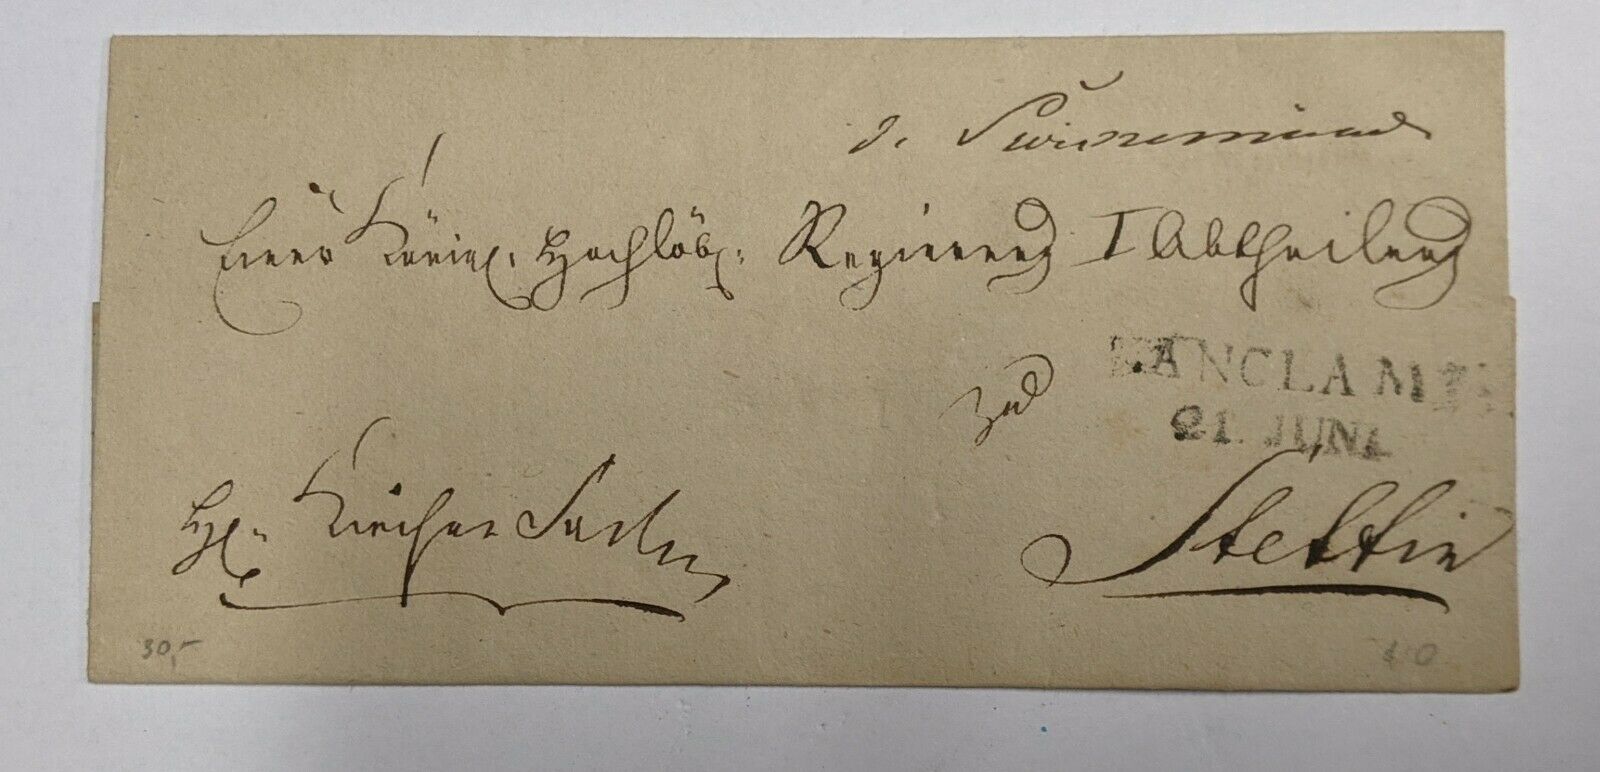 d. Swinemünde
Einer Königl. Hochlöbl. Regierung I Abtheilung
zu
ANCLAM
21. JUNI
Stettin
Hl. Kirchen Sache
30,-